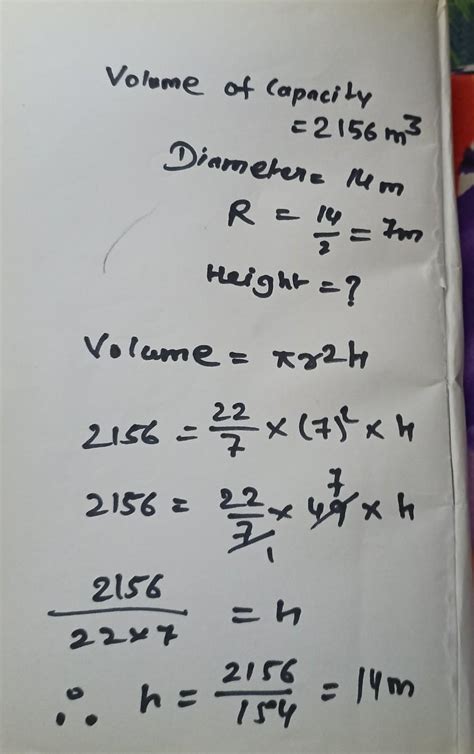 Volume of Capacity
= 2156 m³
Diameter = 14m
R = 14/2 = 7m
Height = ?
Volume = πr2h
2156 = 22/7 × (7)² × h
2156 = 22/7 1 × 49 7 × h
2156/22×7 = h
∴ h = 2156/154 = 14m